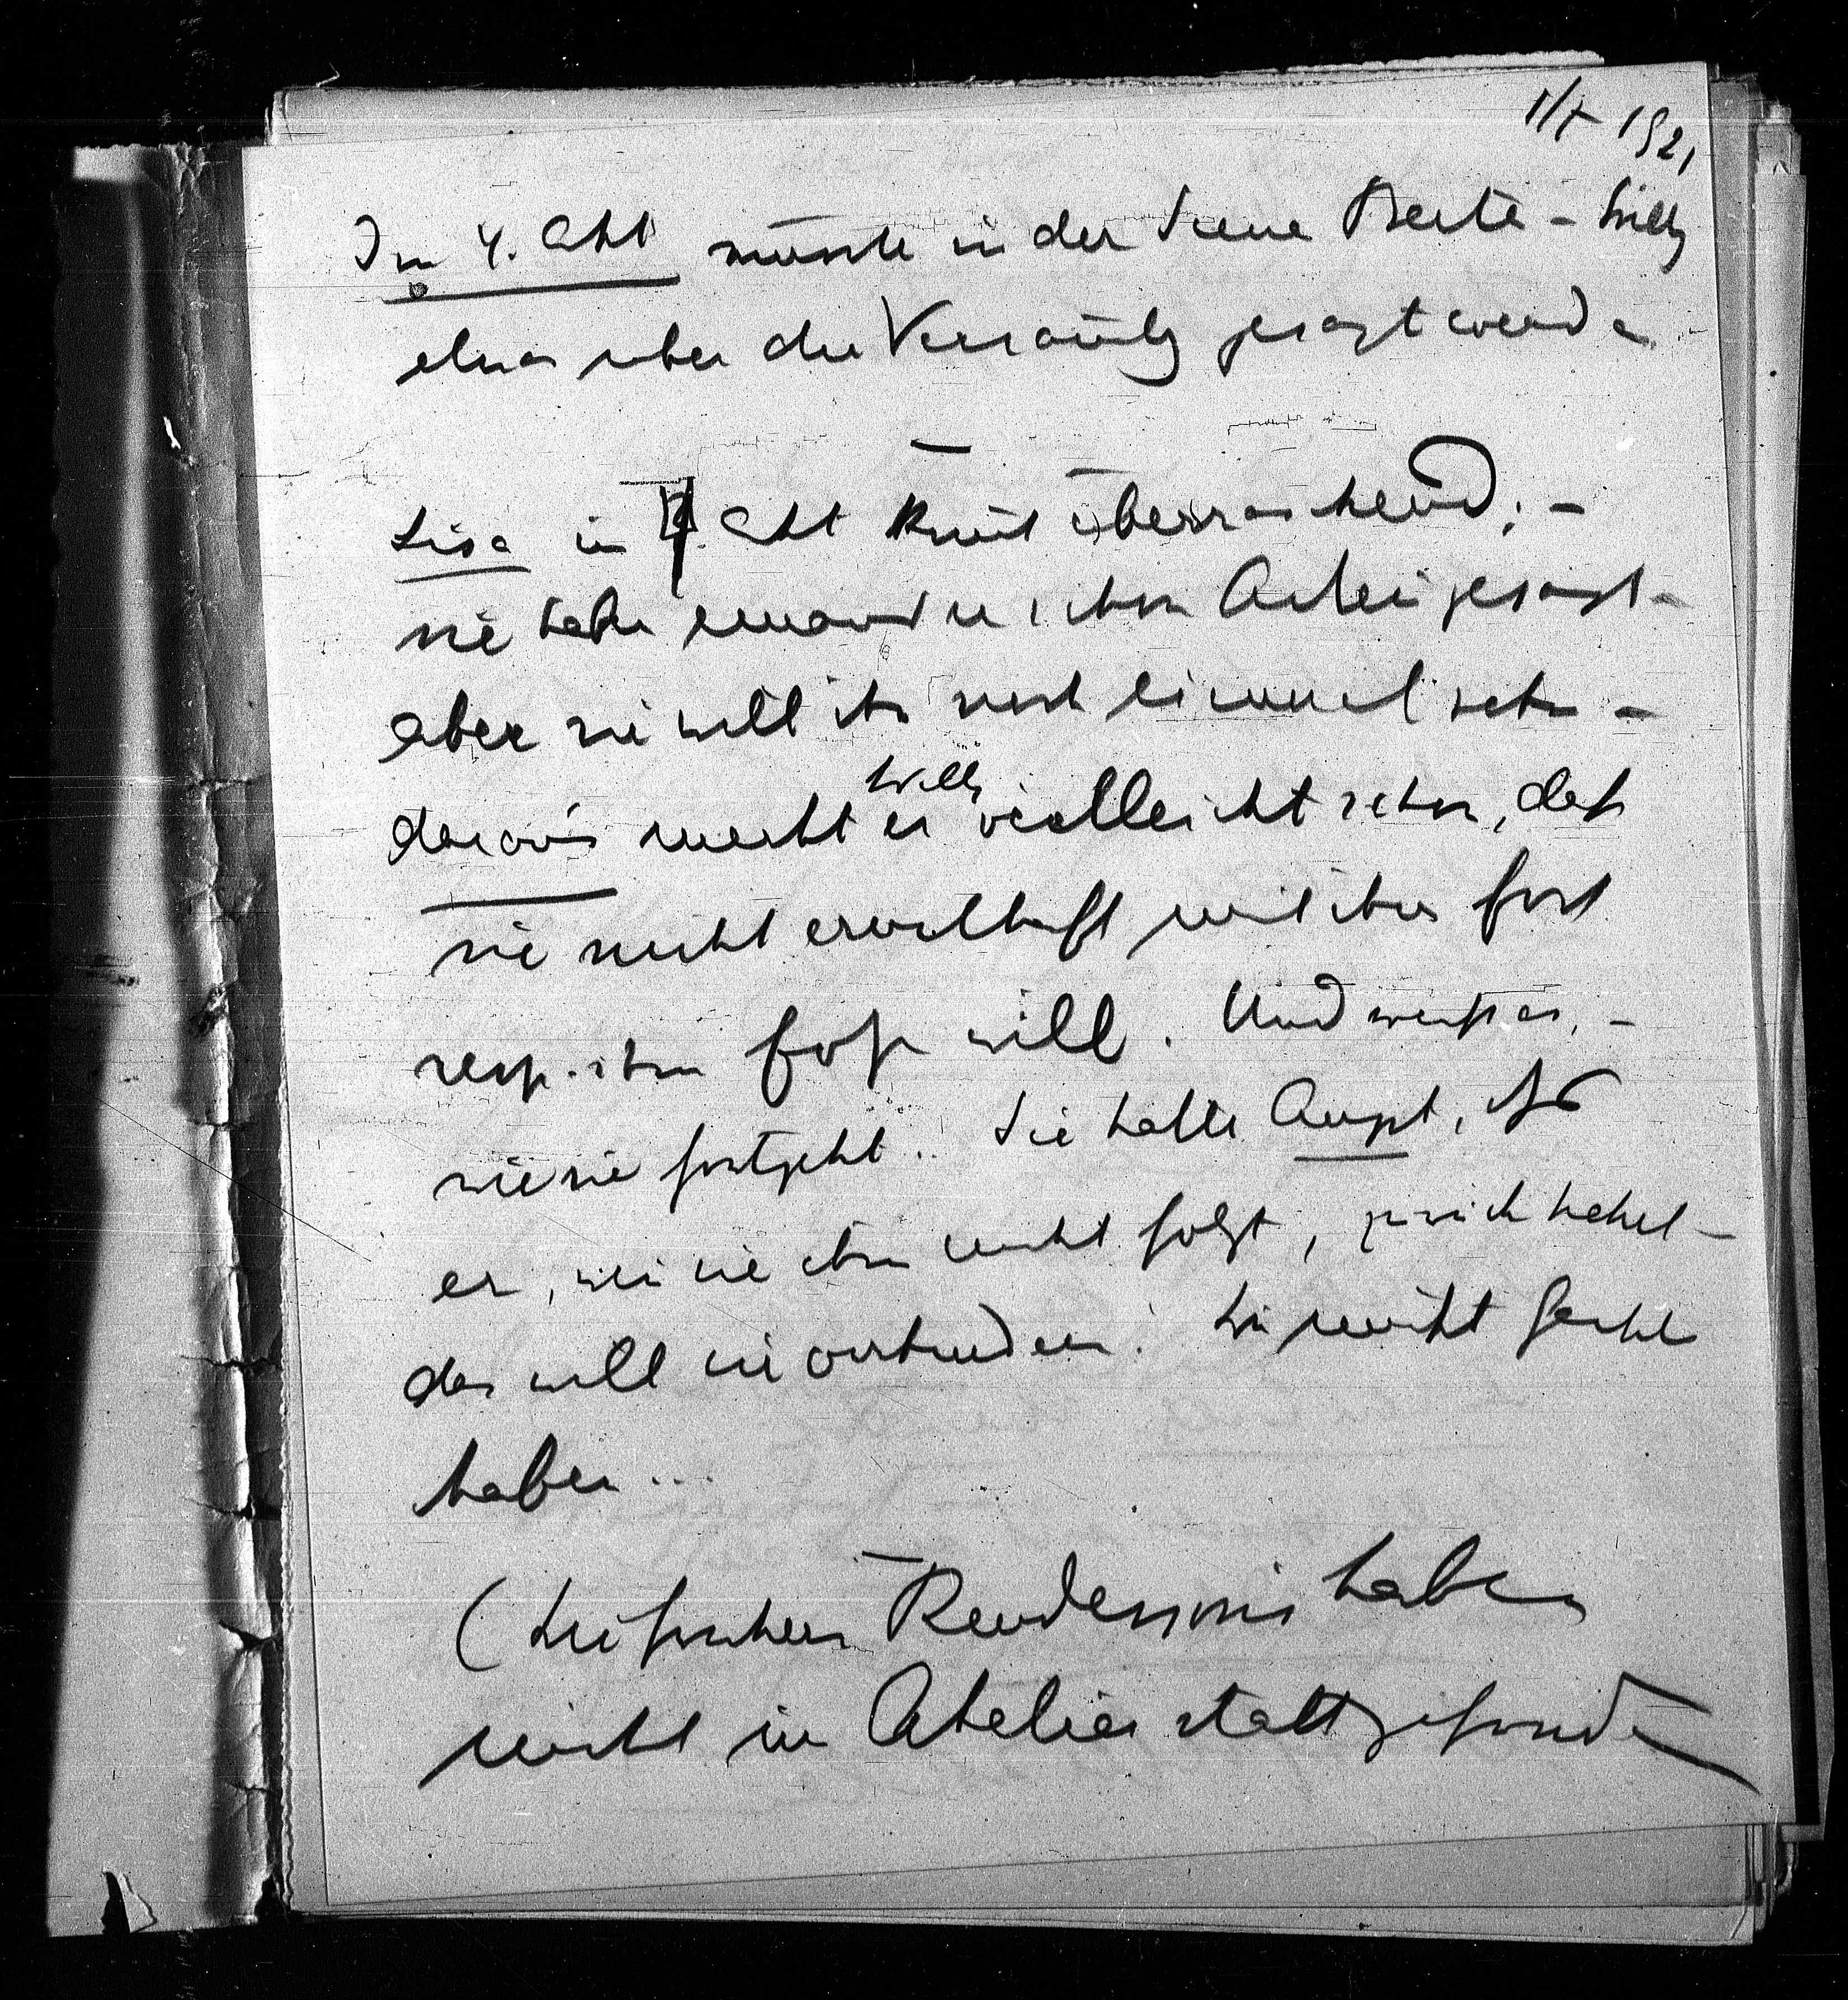 1/X 1921
Im 4. Akt müsste in der Scene Beate - Willy
etwas über die Versäumg gesagt werden
–
Lisa im 4. Akt kommt überraschend; –
sie habe einander schon Adieu gesagt –
aber sie will ihn noch einmal sehn –
daraus merkt er Willy vielleicht schon, daß
sie nicht ernsthaft mit ihm fort
resp. ihm will. Und weiß es, –
wie sie fortgeht.. Sie hatte Angst, daß
er, wenn sie ihm nicht folgt,
das will sie verhindern. Sie nicht
haben ...
–
(Die früheren Rendezvous haben
nicht im Atelier stattgefunden